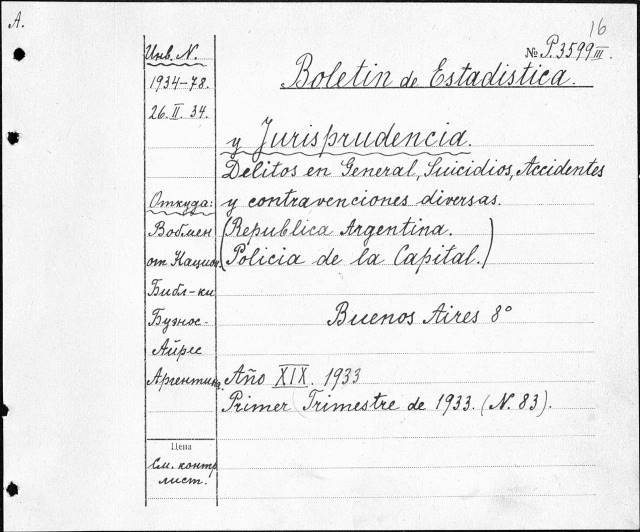 A.
16
№ P.3599 III.
Инв. N.
1934–78.
26. II. 34.
Boletin de Estadistica.
y Jurisprudencia.
Delitos en General, Suicidios, Accidentes
y contravenciones diversas.
(Republica Argentina.
Policia de la Capital.)
Откуда:
Вобмен
от Национ.
Библ-ки
Буэнос-
Айрес
Аргентина.
Buenos Aires 8°
Año XIX. 1933
Primer Trimestre de 1933. (N. 83).
Цена
См. контр
лист.